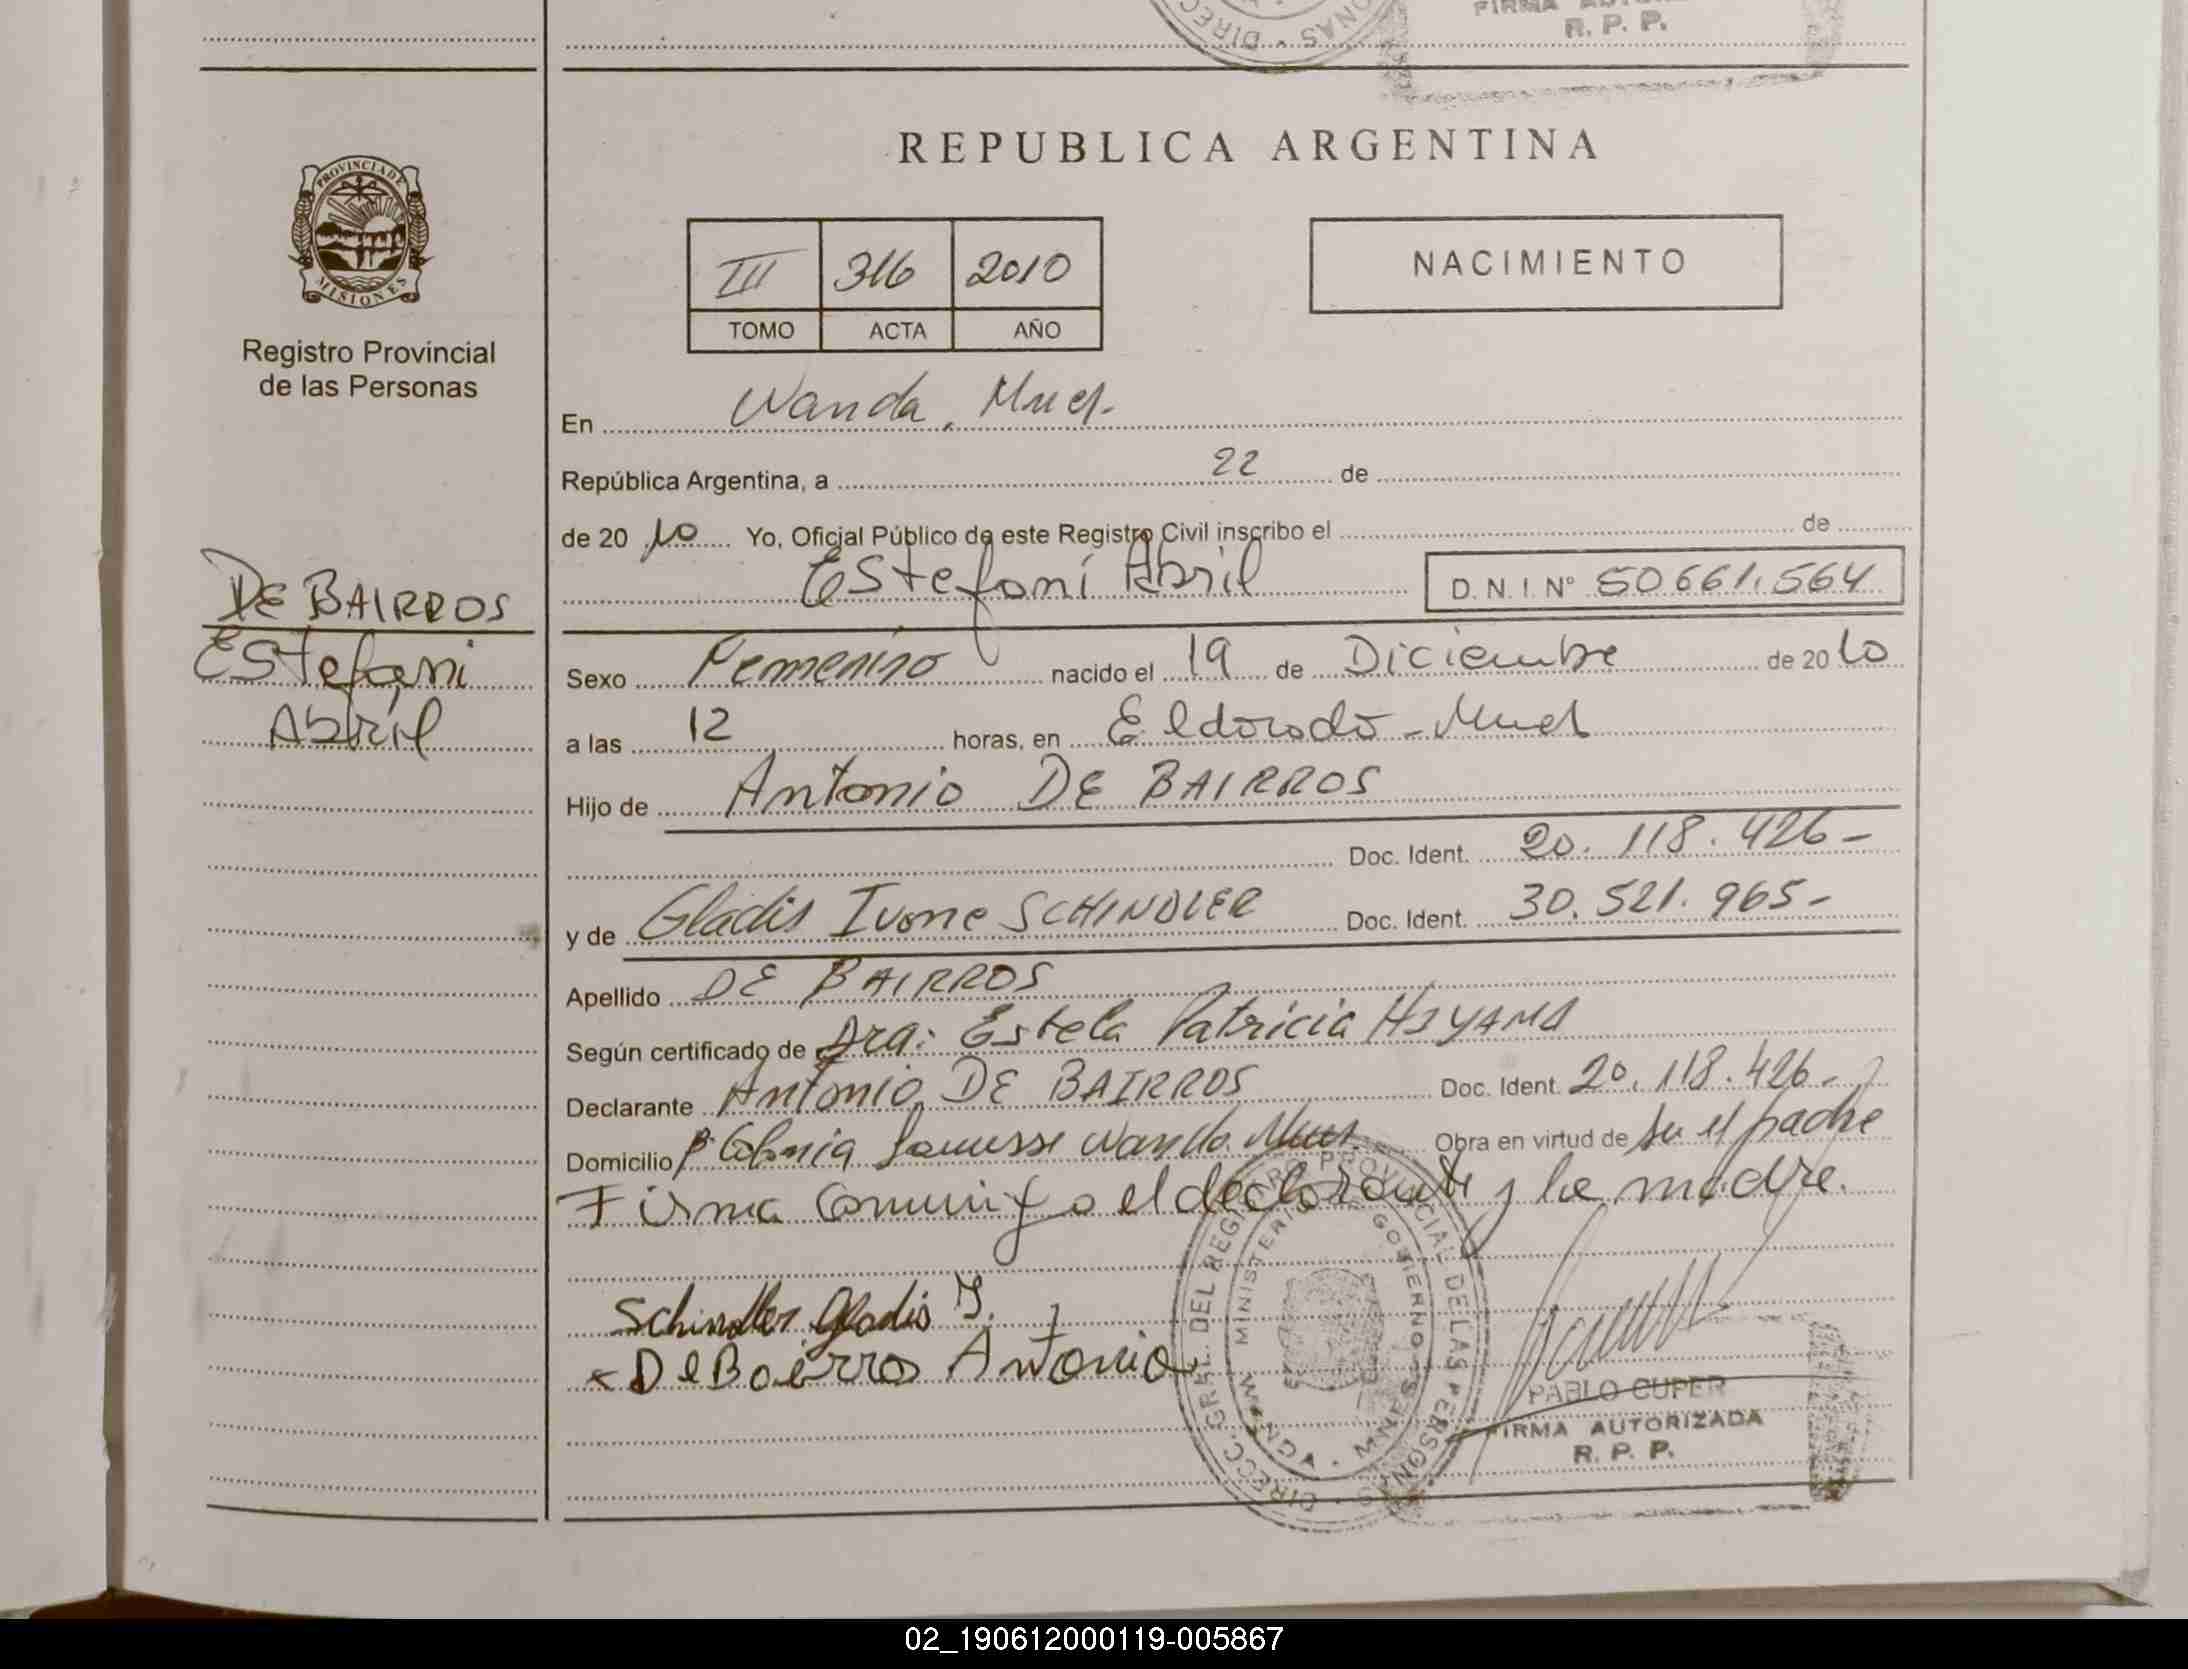 FIRMA
R. P. P.
REPUBLICA ARGENTINA
PROVINCIA DE
MISIONES
Registro Provincial
de las Personas
III 316 2010
TOMO ACTA AÑO
NACIMIENTO
En Wanda, Mnes.
República Argentina, a 22 de
de 20 10 Yo, Oficial Público de este Registro Civil inscribo el de
Estefani Abril D.N.I. N° 50661.564
DE BAIRROS
Estefani
Abril
Sexo Femenino nacido el 19 de Diciembre de 20 10
a las 12 horas, en Eldorado - Mnes
Hijo de Antonio DE BAIRROS
Doc. Ident. 20.118.426-
y de Gladis Ivone SCHINDLER Doc. Ident. 30.521.965-
Apellido DE BAIRROS
Según certificado de Dra: Estela Patricia
Declarante Antonio DE BAIRROS Doc. Ident. 20.118.426-
Domicilio Colonia Wanda. Mnes. Obra en virtud de ser el padre
Firma el declarante y la madre.
Schindler Gladis I.
x De Bairros Antonio
DIRECC. GRAL. DEL REGISTRO PROVINCIAL DE LAS PERSONAS
MINISTERIO GOBIERNO
PABLO CUPER
FIRMA AUTORIZADA
R. P. P.
02_190612000119-005867